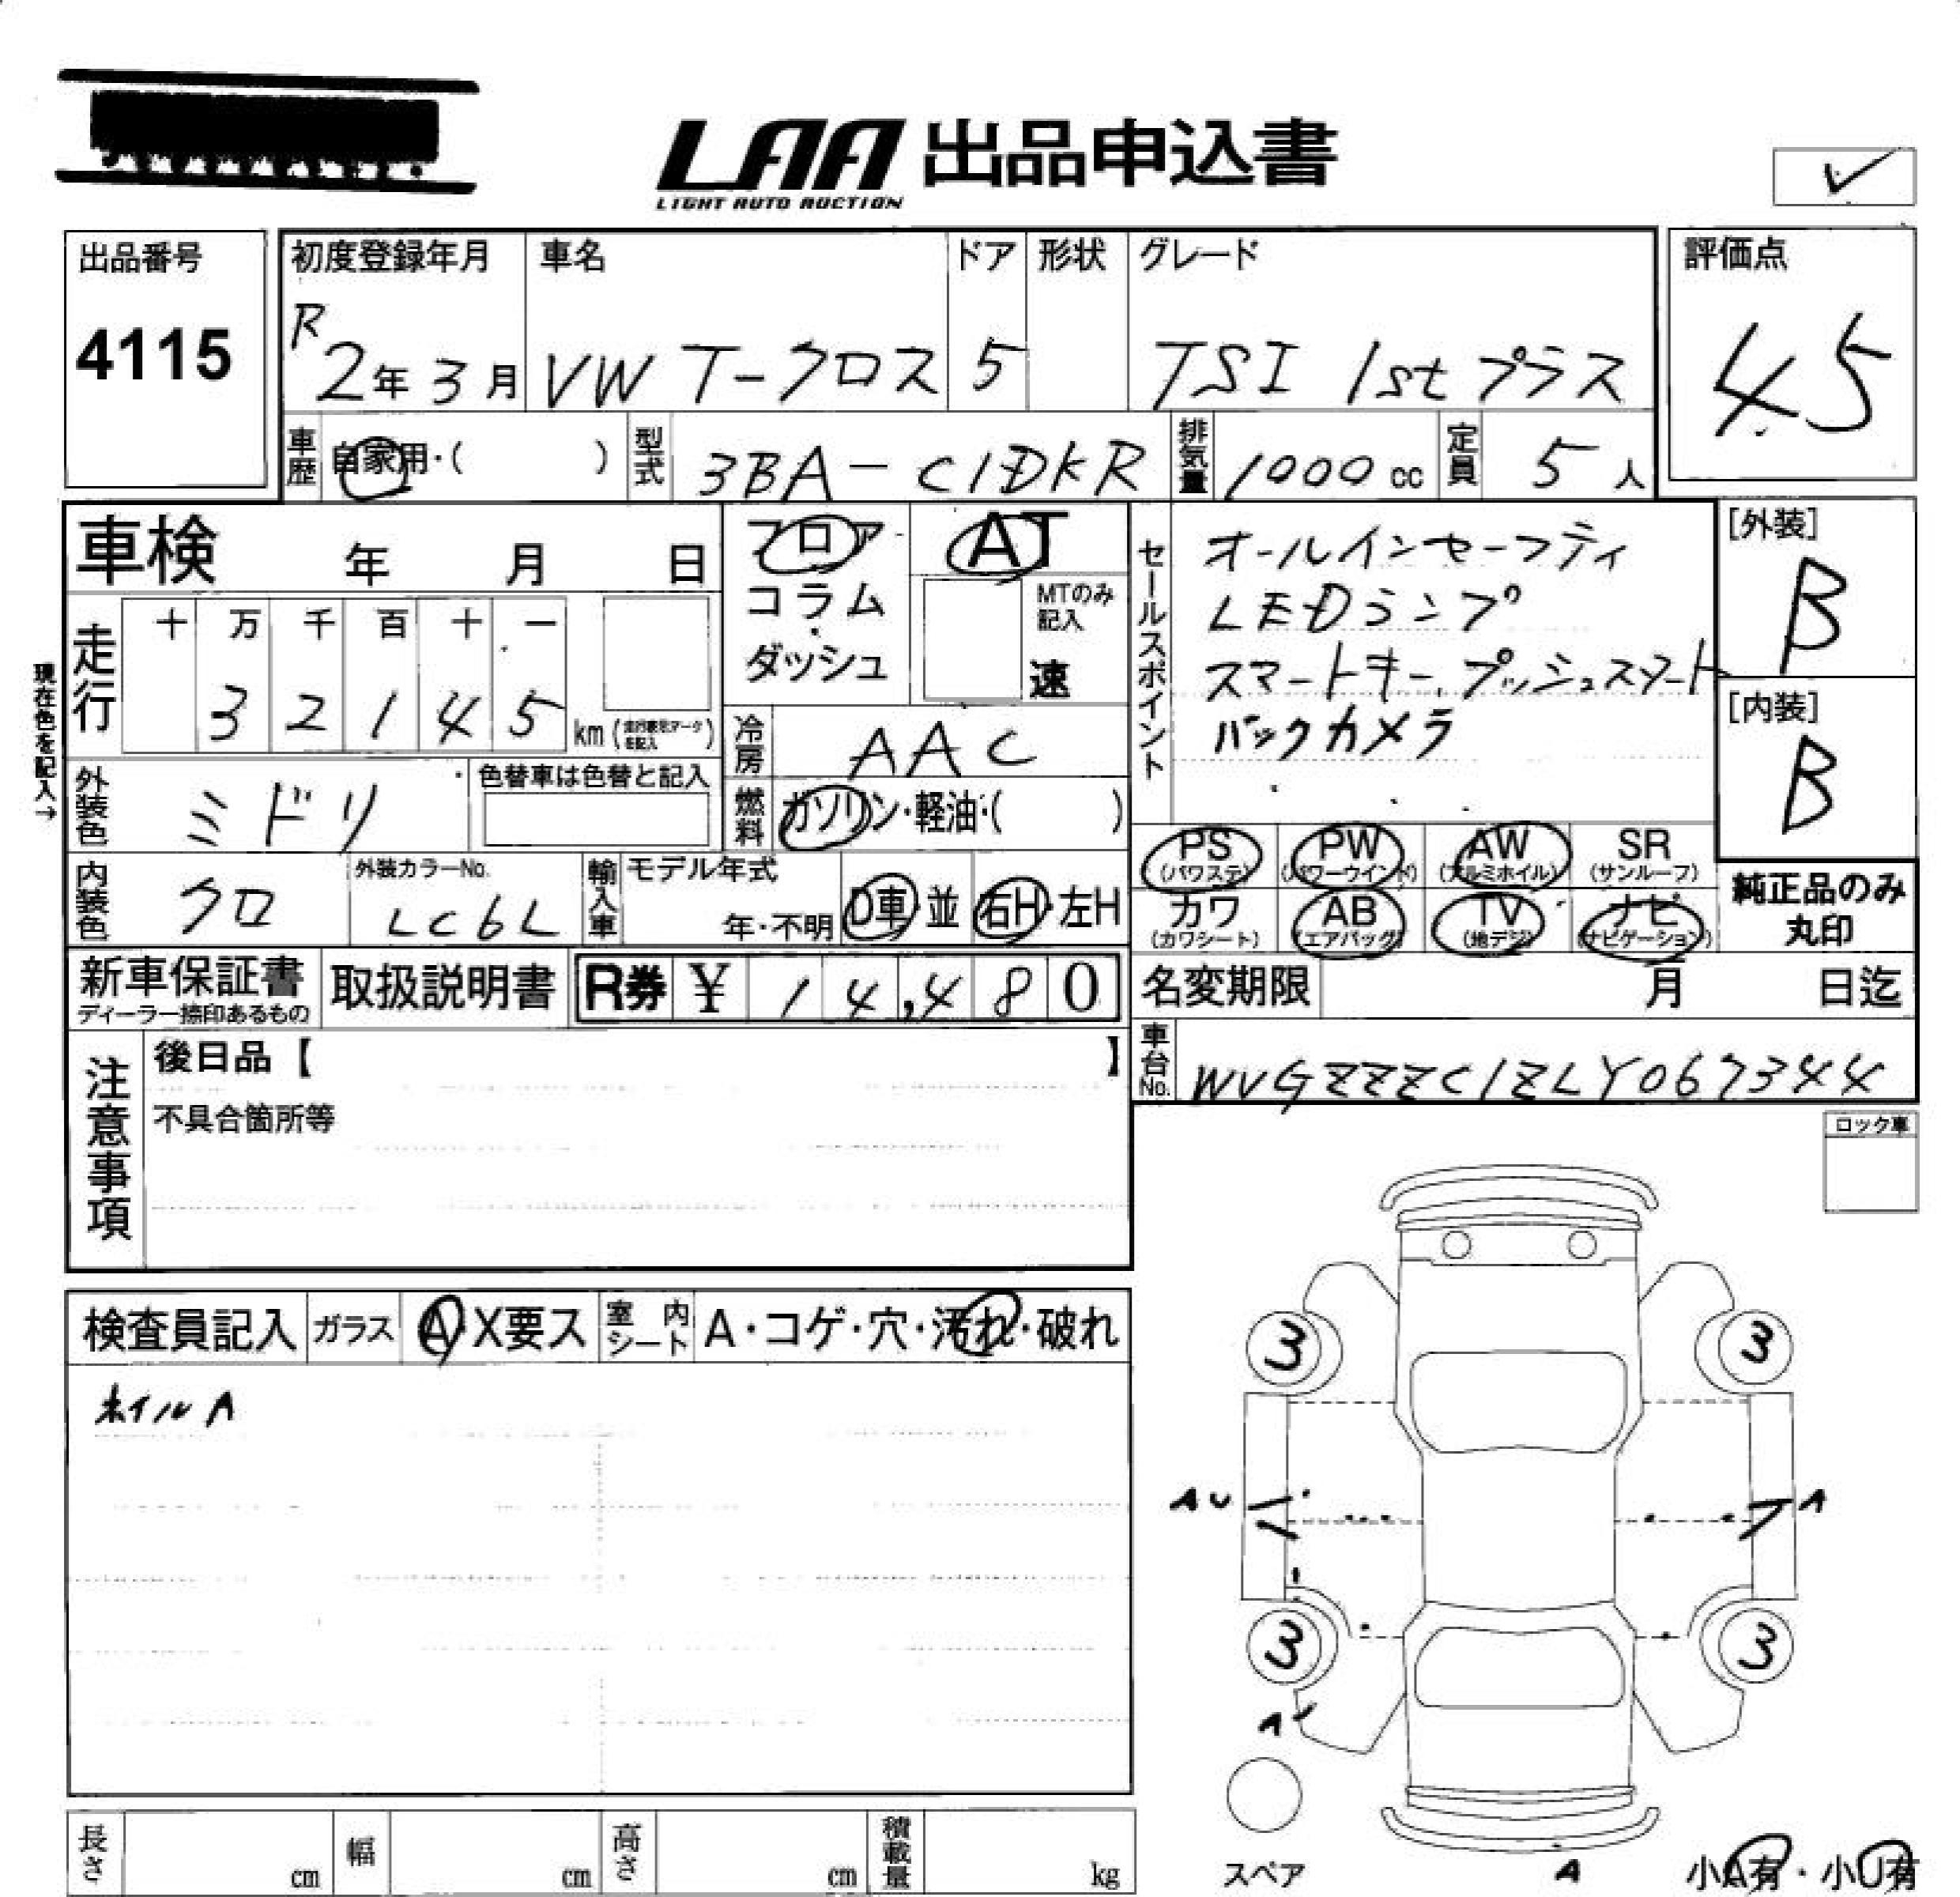 LAA 出品申込書
LIGHT AUTO AUCTION
✓
出品番号
4115
初度登録年月
R2年3月
車名
VW T-クロス
ドア
5
形状
グレード
TSI 1stプラス
評価点
4.5
車歴
自家用・( )
型式
3BA-C1DKR
排気量
1000cc
定員
5人
車検 年 月 日
フロア・
コラム・
ダッシュ
AT
MTのみ記入
速
セールスポイント
オールインセーフティ
LEDランプ
スマートキー、プッシュスタート
バックカメラ
[外装]
B
[内装]
B
現在色を記入→
走行
十 万 千 百 十 一
3 2 1 4 5 km
冷房
AAC
外装色
ミドリ
色替車は色替と記入
燃料
ガソリン・軽油・( )
内装色
クロ
外装カラーNo.
LC6L
輸入車
モデル年式
年・不明
D車・並
右H・左H
PS (パワステ)
PW (パワーウインド)
AW (アルミホイル)
SR (サンルーフ)
カワ (カワシート)
AB (エアバッグ)
TV (地デジ)
ナビ (ナビゲーション)
純正品のみ
丸印
新車保証書
ディーラー捺印あるもの
取扱説明書
R券 ¥ 14,480
名変期限 月 日迄
車台No.
WVGZZZC1ZLY067344
注意事項
後日品【 】
不具合箇所等
ロック車
検査員記入
ガラス
A・X要ス
室内シート
A・コゲ・穴・汚れ・破れ
ホイルA
3 3
AU A
3 3
A
スペア
A
小A有・小U有
長さ cm
幅 cm
高さ cm
積載量 kg